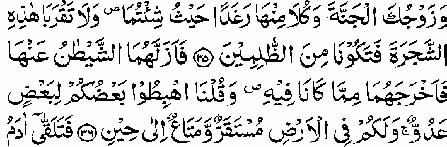 وَزَوْجُكَ الْجَنَّةَ وَكُلَا مِنْهَا رَغَدًا حَيْثُ شِئْتُمَا ۖ وَلَا تَقْرَبَا هٰذِهِ
الشَّجَرَةَ فَتَكُوْنَا مِنَ الظّٰلِمِيْنَ ﴿٣٥﴾ فَاَزَلَّهُمَا الشَّيْطٰنُ عَنْهَا
فَاَخْرَجَهُمَا مِمَّا كَانَا فِيْهِ ۖ وَقُلْنَا اهْبِطُوْا بَعْضُكُمْ لِبَعْضٍ
عَدُوٌّ ۚ وَلَكُمْ فِى الْاَرْضِ مُسْتَقَرٌّ وَّمَتَاعٌ اِلٰى حِيْنٍ ﴿٣٦﴾ فَتَلَقّٰٓى اٰدَمُ